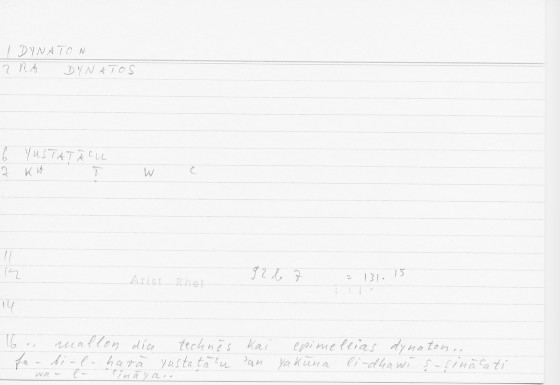 1 DYNATON
2 NA DYNATOS
6 YUSTAṬĀʿU
7 KH Ṭ W ʿ
11
12 Arist Rhet 92 b 7 = 131.15
14
16 .. mallon dia technēs kai epimeleias dynaton..
fa-bi-l-ḥarā yustaṭāʿu ʾan yakūna li-dhawī ṣ-ṣināʿati
wa-l-ʿināya..